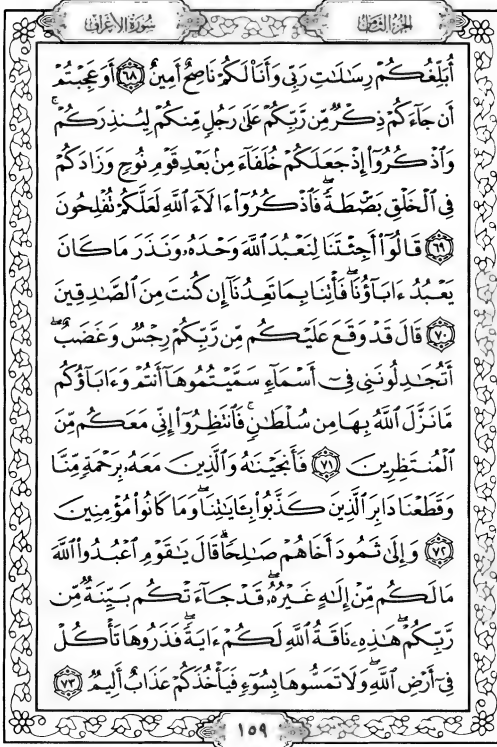 سُورَةُ الأَعْرَافِ
الجُزْءُ الثَّامِنُ
أُبَلِّغُكُمْ رِسَالَاتِ رَبِّي وَأَنَا۠ لَكُمْ نَاصِحٌ أَمِينٌ ٦٨ أَوَعَجِبْتُمْ
أَن جَاءَكُمْ ذِكْرٌ مِّن رَّبِّكُمْ عَلَىٰ رَجُلٍ مِّنكُمْ لِيُنذِرَكُمْ ۚ
وَاذْكُرُوا إِذْ جَعَلَكُمْ خُلَفَاءَ مِنۢ بَعْدِ قَوْمِ نُوحٍ وَزَادَكُمْ
فِي الْخَلْقِ بَصْۜطَةً ۖ فَاذْكُرُوا ءَالَاءَ اللَّهِ لَعَلَّكُمْ تُفْلِحُونَ
٦٩ قَالُوا أَجِئْتَنَا لِنَعْبُدَ اللَّهَ وَحْدَهُۥ وَنَذَرَ مَا كَانَ
يَعْبُدُ ءَابَاؤُنَا ۖ فَأْتِنَا بِمَا تَعِدُنَا إِن كُنتَ مِنَ الصَّادِقِينَ
٧٠ قَالَ قَدْ وَقَعَ عَلَيْكُم مِّن رَّبِّكُمْ رِجْسٌ وَغَضَبٌ ۖ
أَتُجَادِلُونَنِي فِي أَسْمَاءٍ سَمَّيْتُمُوهَا أَنتُمْ وَءَابَاؤُكُم
مَّا نَزَّلَ اللَّهُ بِهَا مِن سُلْطَانٍ ۚ فَانتَظِرُوا إِنِّي مَعَكُم مِّنَ
الْمُنتَظِرِينَ ٧١ فَأَنجَيْنَاهُ وَالَّذِينَ مَعَهُۥ بِرَحْمَةٍ مِّنَّا
وَقَطَعْنَا دَابِرَ الَّذِينَ كَذَّبُوا بِـَٔايَاتِنَا ۖ وَمَا كَانُوا مُؤْمِنِينَ
٧٢ وَإِلَىٰ ثَمُودَ أَخَاهُمْ صَالِحًا ۗ قَالَ يَا قَوْمِ اعْبُدُوا اللَّهَ
مَا لَكُم مِّنْ إِلَٰهٍ غَيْرُهُۥ ۖ قَدْ جَاءَتْكُم بَيِّنَةٌ مِّن
رَّبِّكُمْ ۖ هَٰذِهِۦ نَاقَةُ اللَّهِ لَكُمْ ءَايَةً ۖ فَذَرُوهَا تَأْكُلْ
فِي أَرْضِ اللَّهِ ۖ وَلَا تَمَسُّوهَا بِسُوءٍ فَيَأْخُذَكُمْ عَذَابٌ أَلِيمٌ ٧٣
١٥٩